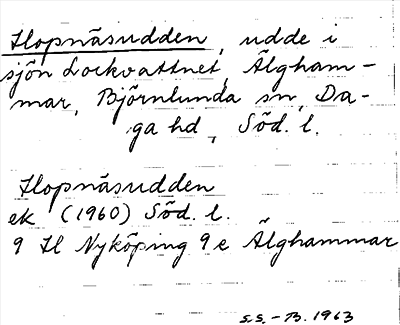 Hopnäsudden, udde i
sjön Lockvattnet, Älgham-
mar, Björnlunda sn, Da-
ga hd, Söd. l.
Hopnäsudden
ek (1960) Söd. l.
9 H Nyköping 9 e Älghammar
S.S. - B. 1963